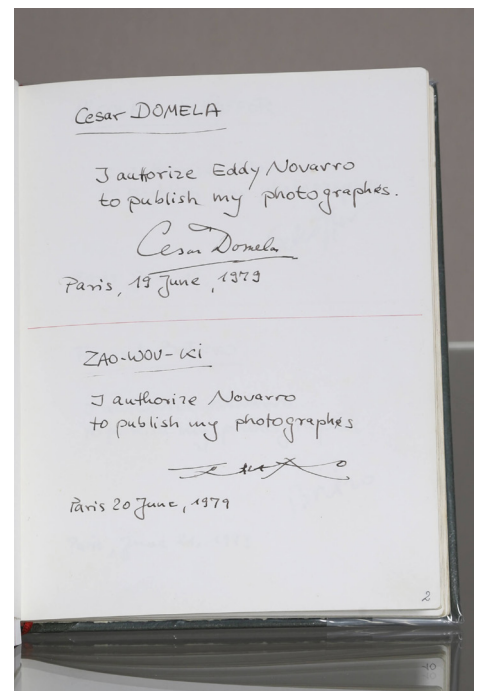 Cesar DOMELA
I autforize Eddy Novarro
to publish my photographés.
Cesar Domela
Paris, 19 June, 1979
ZAO-WOU-Ki
I authorize Novarro
to publish my photographés
Paris 20 June, 1979
2